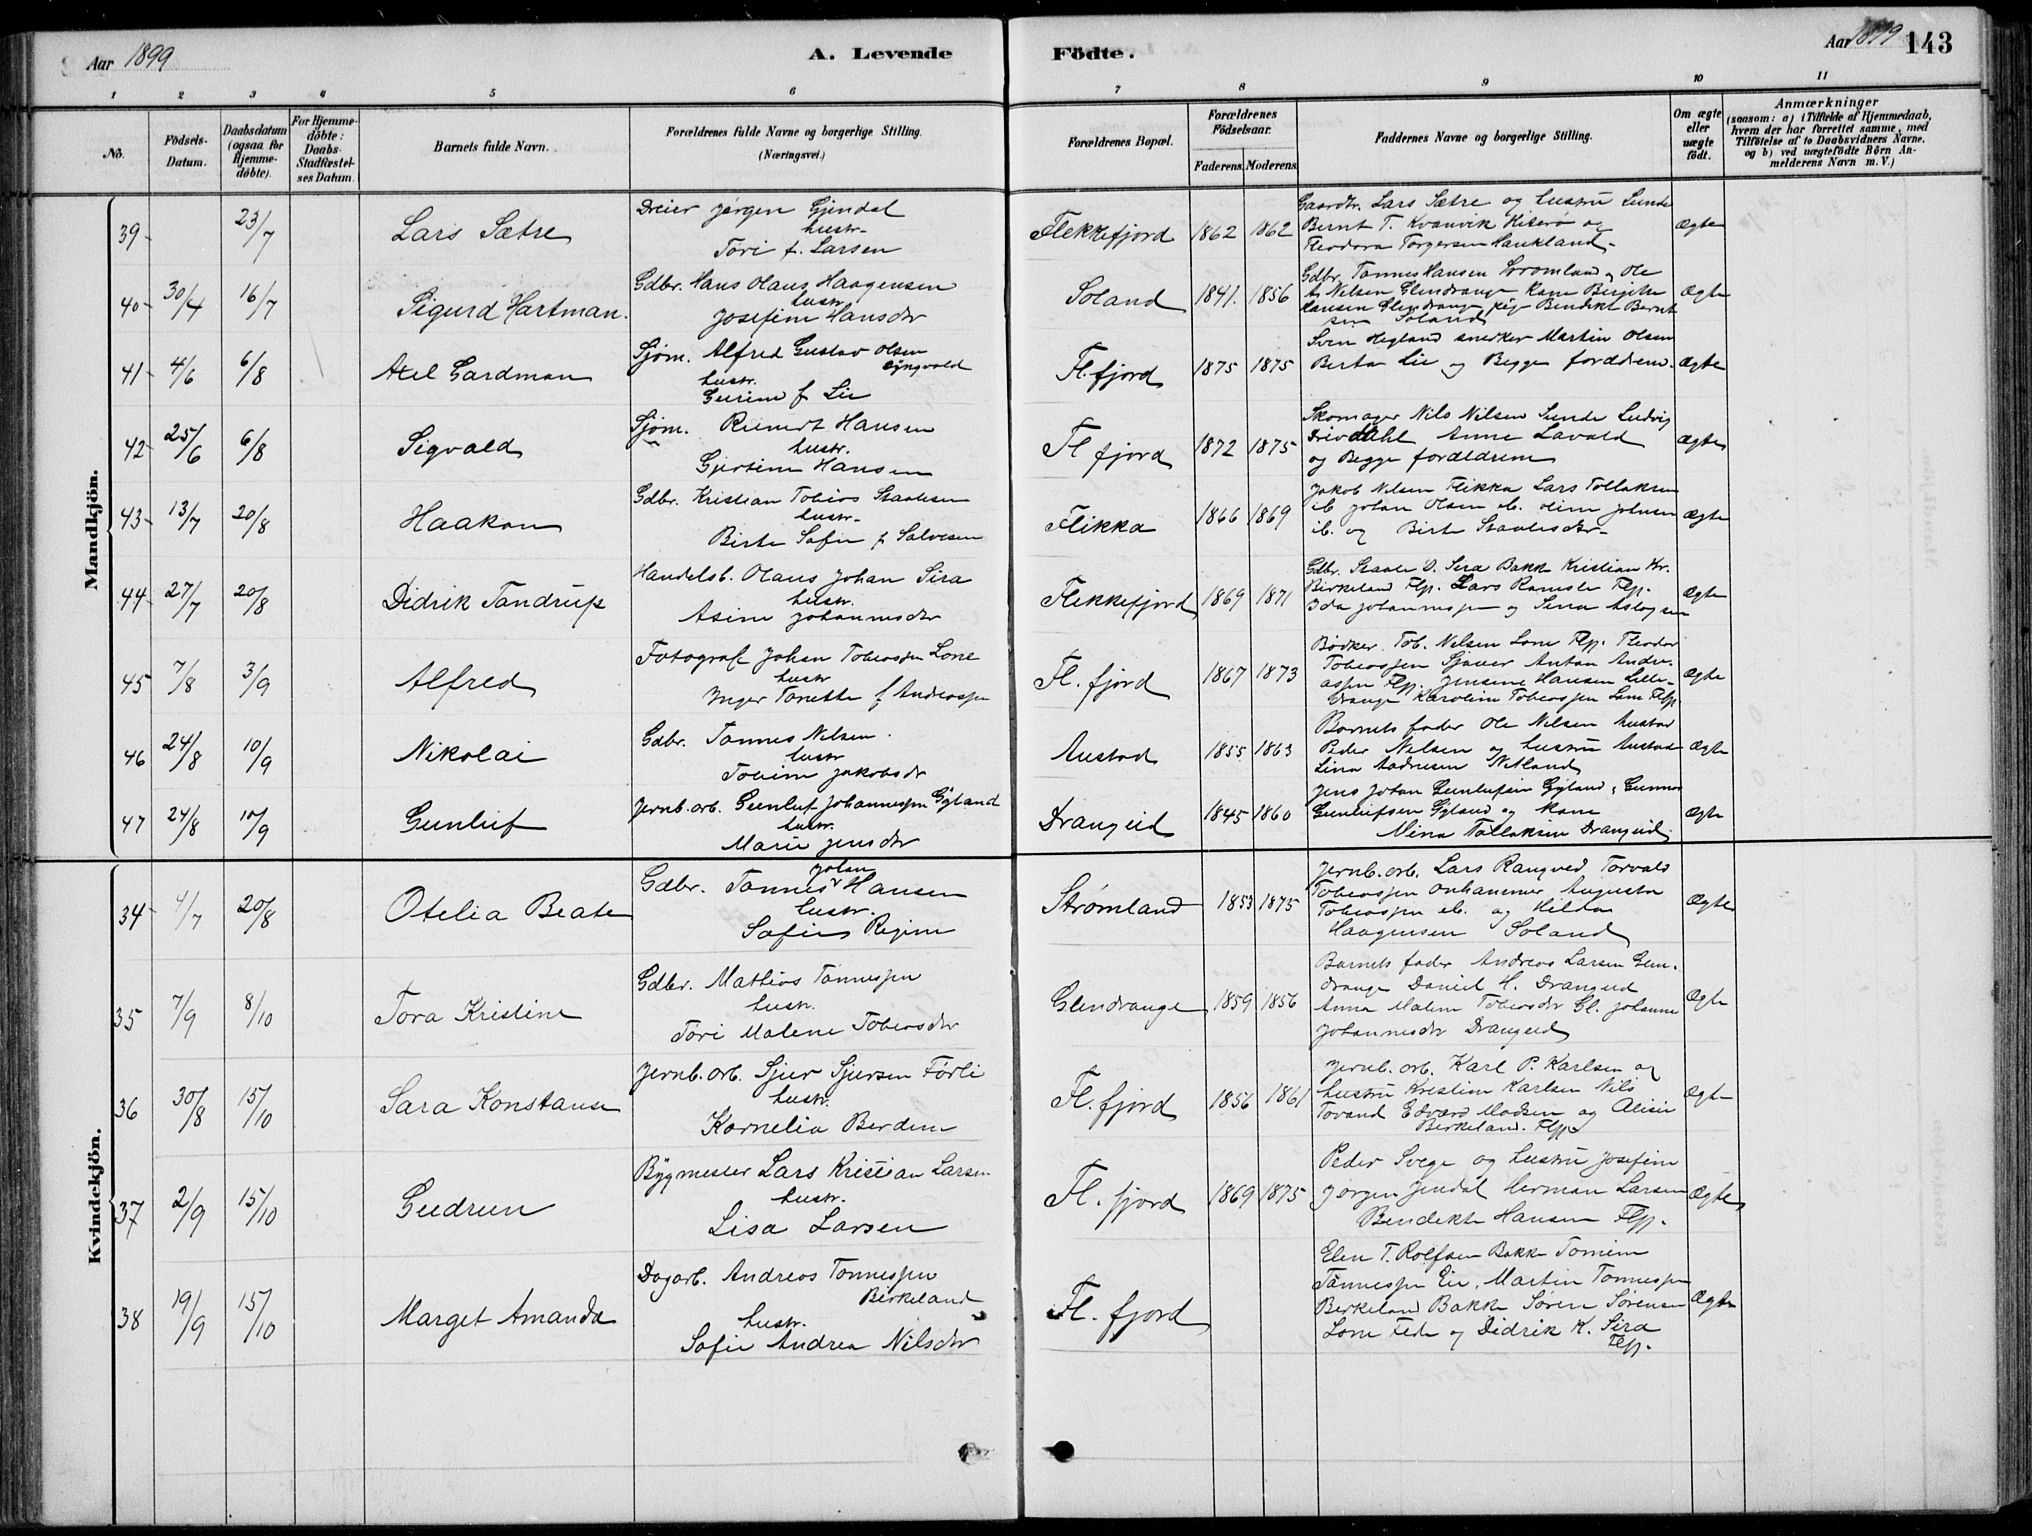 Aar 1899
A. Levende
Födte.
Aar 1899
143
1 2 3 4 5 6 7 8 9 10 11
No.
Födsels-Datum.
Daabsdatum (ogsaa for Hjemme-döbte).
For Hjemme-döbte: Daabs-Stadfæstel-ses Datum.
Barnets fulde Navn.
Forældrenes fulde Navne og borgerlige Stilling.
(Næringsvei.)
Forældrenes Bopæl.
Forældrenes Födselsaar.
Faderens. Moderens.
Faddernes Navne og borgerlige Stilling.
Om ægte eller uægte födt.
Anmærkninger
(saasom: a) i Tilfælde af Hjemmedaab, hvem der har forrettet samme, med Tilföielse af to Daabsvidners Navne. og b) ved uægtefödte Börn An-melderens Navn m. V.)
Mandkjön.
39 23/7 Lars Sætre
Dreier Jørgen Gjendal
hustr.
Tori f. Larsen
Flekkefjord 1862 1862
Gaardbr. Lars Sætre og hustru Sunde
Bernt T. Kvanvik Hiserø og
Theodora Torgersen Haukland
Ægte
40 30/4 16/7 Sigurd Hartman.
Gdbr. Hans Olaus Haagensen
hustr.
Josefine Hansdtr
Soland 1841. 1856
Gdbr. Tønnes Hansen Strømland og Ole
A. Nilsen Glendrange Kone Birgitte
Hansen Glendrange pige Bendikte Bernt
sen Soland
Ægte
41 4/6 6/8 Axel Gardman
Sjøm. Alfred Gustav Olsen
Øyngvald
hustr.
Gurine f Lie
Fl.fjord 1875 1875
Sven Hegland snedker Martin Olsen
Berta Lie og Begge forældrene.
Ægte
42 25/6 6/8 Sigvald
Sjøm. Reinert Hansen
hustr.
Gjertine Hansen
Fl fjord 1872 1875
Skomager Nils Nilsen Sunde Ludvig
Drivdahl Anne Lavold
og Begge forældrene
Ægte
43 13/7 20/8 Haakon
Gdbr. Kristian Tobias Staalesen
hustr.
Birte Sofie f Salvesen
Flikka 1866 1869
Jakob Nilsen Flikka Lars Tollaksen
ib Johan Olsen ib. Oline Johnsen
ib. og Birte Staalesdtr
Ægte
44 27/7 20/8 Didrik Tandrup
Handelsb. Olaus Johan Sira
hustr.
Asine Johannesdtr
Flekkefjord 1869 1871
Gdbr. Staale O. Sira Bakk Kristian Kr.
Birkeland Flfj. Lars Ramsli Flfj.
Ida Johannessen og Sina Aslagsen
Ægte
45 7/8 3/9 Alfred
Fotograf Johan Tobiassen Lone
hustr
Inger Tonette f Andreassen
Fl. fjord 1867 1873
Bødker Tob. Nilsen Lone Flfj. Theodor
Tobiassen Anton Andre-
assen Flfj. Jensine Hansen Lille-
drange Karoline Tobiassen Lone Flfj.
Ægte
46 24/8 10/9 Nikolai
Gdbr. Tønnes Nilsen
hustr
Tobine Jakobsdr
Austad 1855 1863
Barnets fader Ole Nilsen Austad
Peder Nilsen og hustru Austad
Lina Andresen Netland
Ægte
47 24/8 10/9 Gunluf
Jernb. arb. Gunluf Johannessen Gyland
hustr.
Marie Jensdtr
Drangeid 1845 1860
Jens Johan Gunlufsen Gyland, Gunnar
Gunlufsen Gyland og Kone
Mina Tollaksen Drangeid
Ægte
Kvindekjön.
34 4/7 20/8 Otelia Beate
Johan
Gdbr. Tønnes Hansen
hustr.
Sofie Regine
Strømland 1853 1875
Jernb. arb. Lars Rangved Torvald
Tobiassen Onhammer Augusta
Tobiassen ib. og Hilda
Haagensen Soland
Ægte
35 7/9 8/10 Tora Kristine
Gdbr. Mathias Tønnessen
hustr.
Tori Malene Tobiasdtr
Glendrange 1859 1856
Barnets fader Andreas Larsen Glen-
drange Daniel H. Drangeid
Anna Malene Tobiasdtr Gl. Johanne
Johannesdtr Drangeid
Ægte
36 30/8 15/10 Sara Konstanse
Jernb. arb. Sjur Sjursen Førli
hustr.
Kornelia Berdine
Fl. fjord 1856 1861
Jernb. arb. Karl P. Karlsen og
hustru Kristine Karlsen Nils
Tovand Edvard Madsen og Alisie
Birkeland. Flfj.
Ægte
37 2/9 15/10 Gudrun
Bygmester Lars Kristian Larsen
hustr.
Lisa Larsen
Fl. fjord 1869 1875
Peder Svege og hustru Josefine
Jørgen Jendal Herman Larsen
Bendikte Hansen Flfj.
Ægte
38 19/9 15/10 Marget Amanda
Dagarb. Andreas Tønnessen
Birkeland
hustr.
Sofie Andrea Nilsdtr
Fl. fjord
Elen T. Rolfsen Bakke Tomine
Tønnessen Eie, Martin Tønnessen
Birkeland Bakke Søren Sørensen
Lone Fede og Didrik K. Sira
Flfj.
Ægte